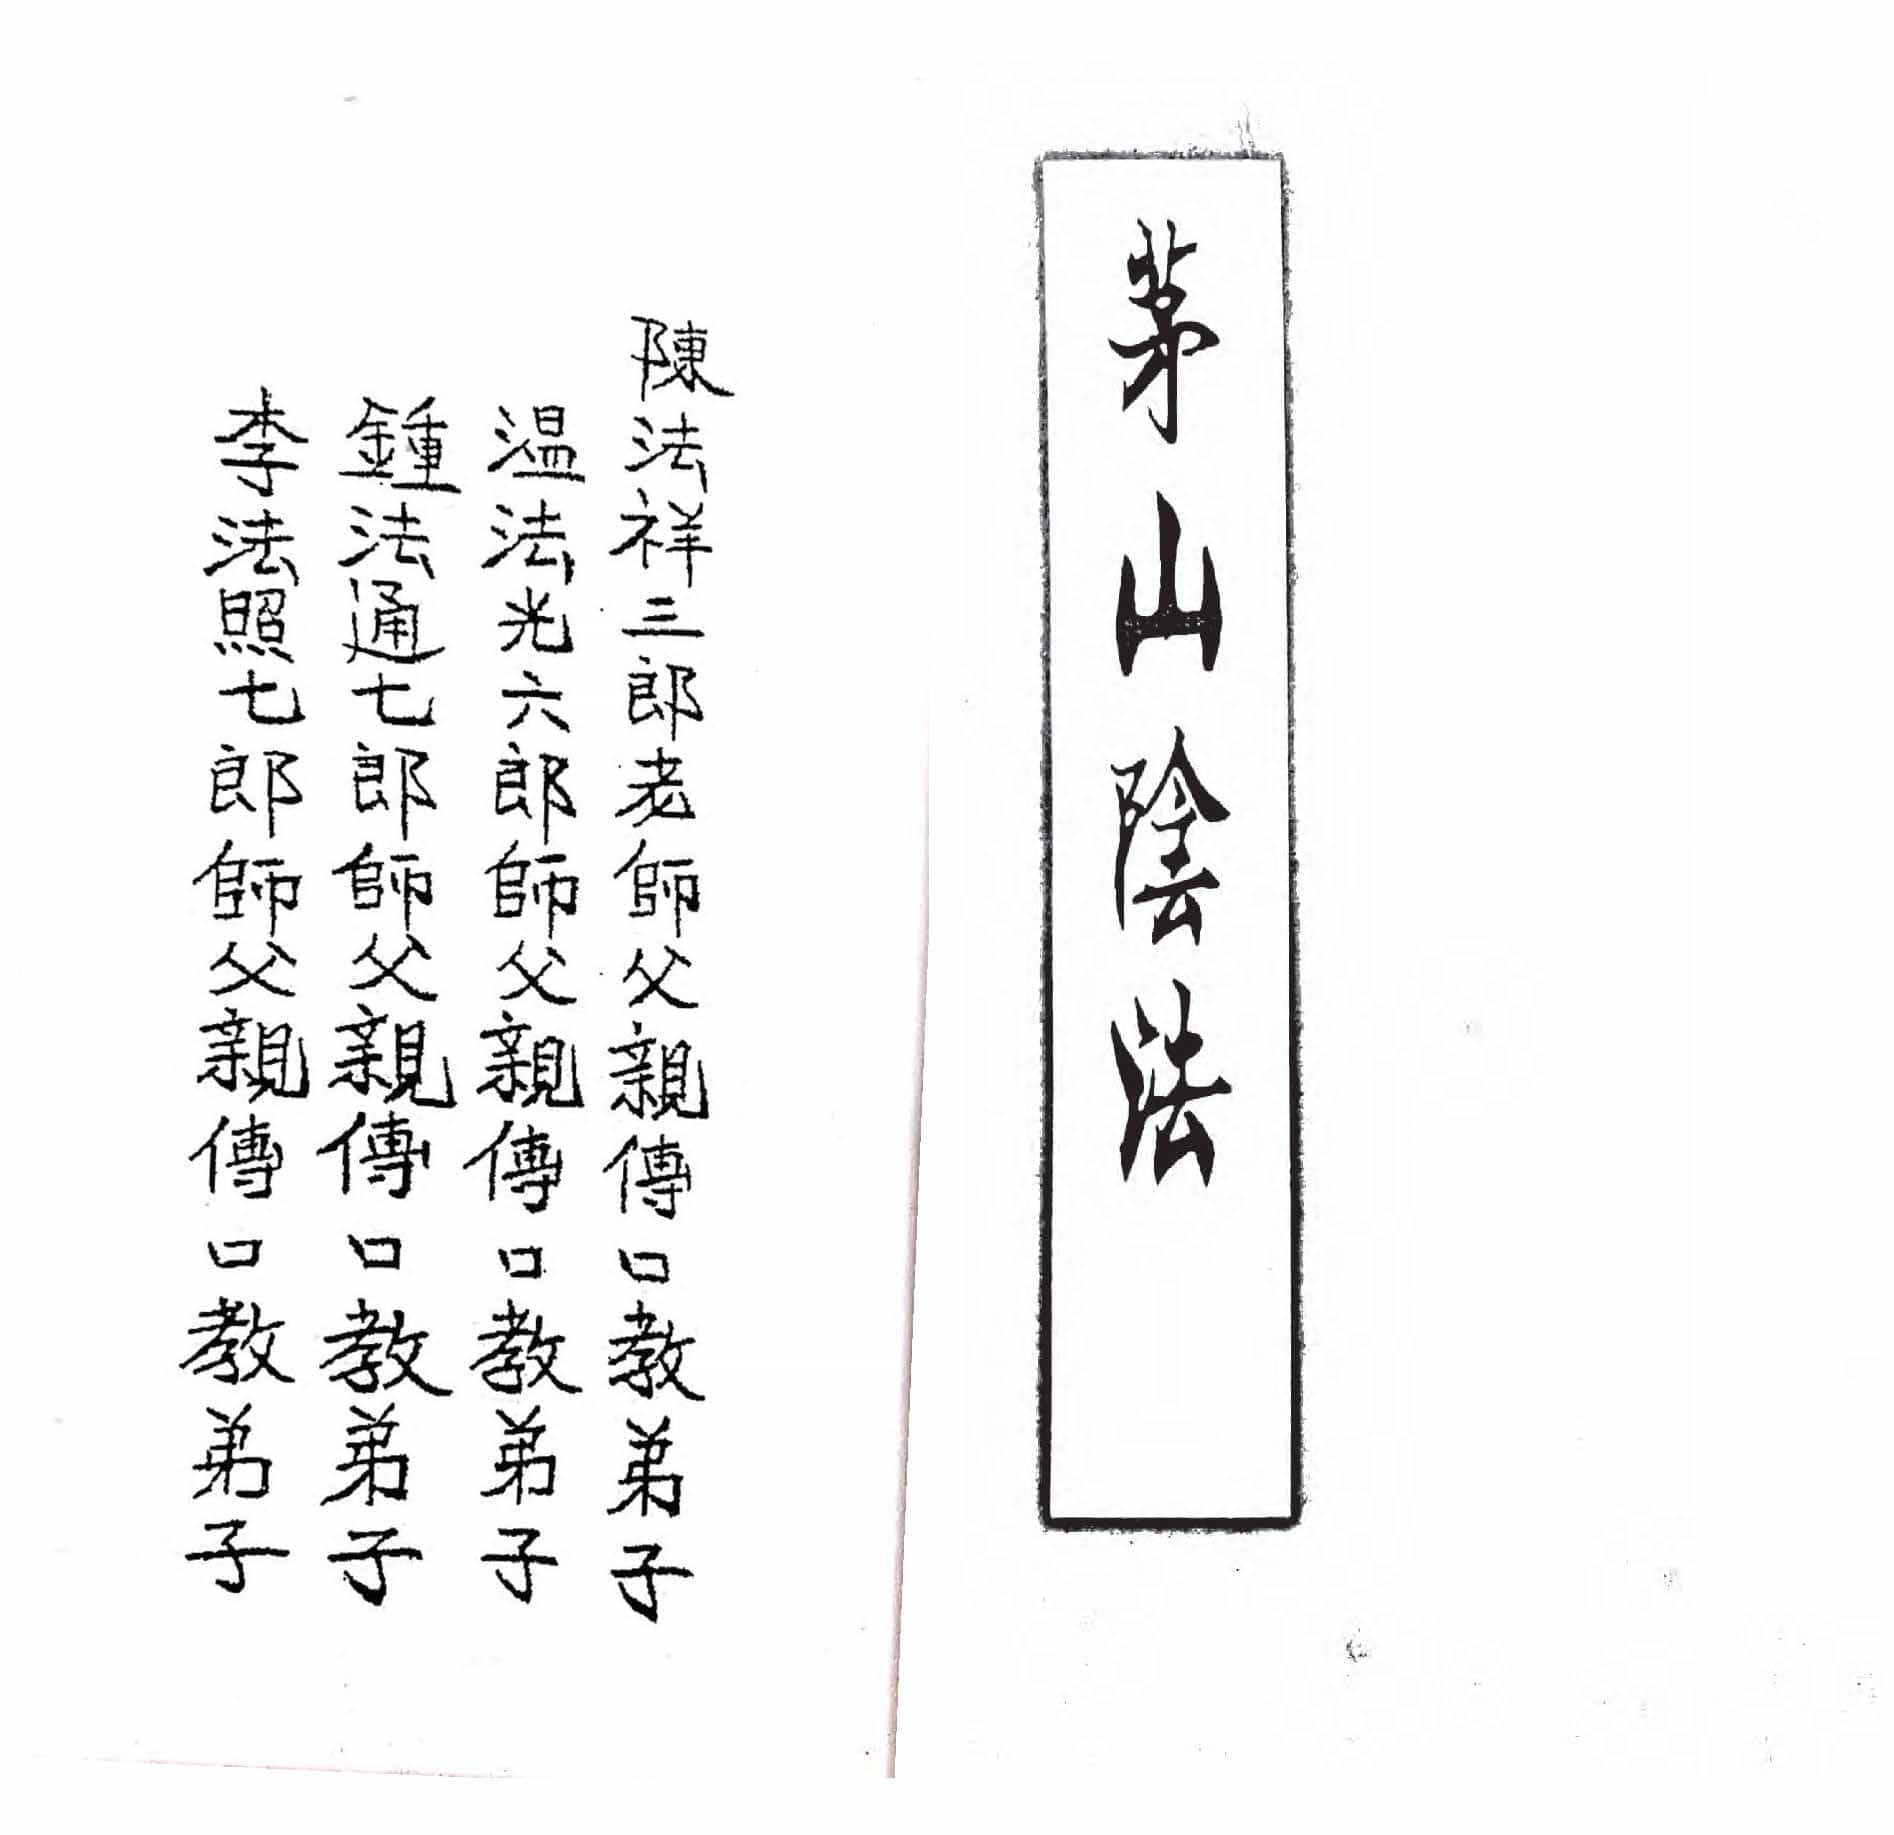 茅山陰法
陳法祥三郎老師父親傳口教弟子
溫法光六郎師父親傳口教弟子
鍾法通七郎師父親傳口教弟子
李法照七郎師父親傳口教弟子